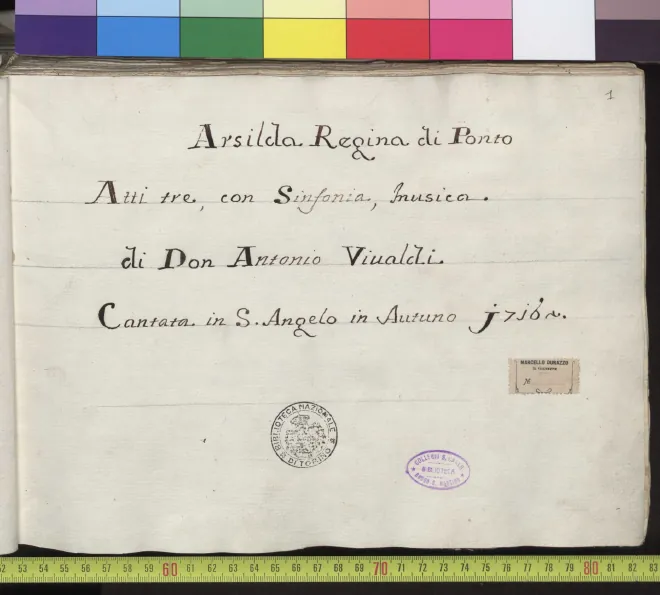 1
Arsilda Regina di Ponto
Atti tre, con Sinfonia, Musica.
di Don Antonio Viualdi.
Cantata in S. Angelo in Autuno 1716
MARCELLO DURAZZO
N
BIBLIOTECA NAZIONALE
DI TORINO
52 53 54 55 56 57 58 59 60 61 62 63 64 65 66 67 68 69 70 71 72 73 74 75 76 77 78 79 80 81 82 83